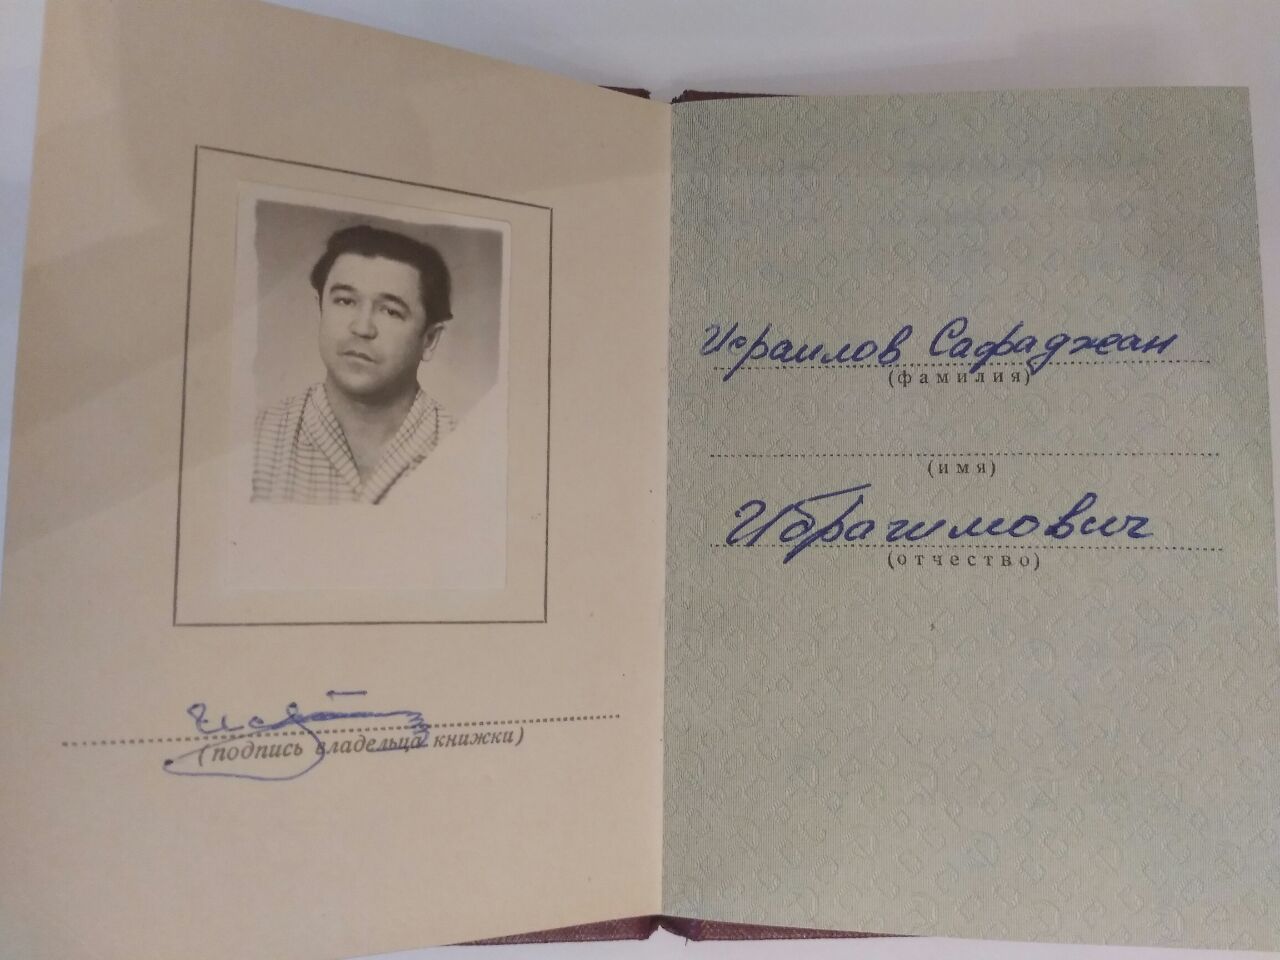 (подпись владельца книжки)
Исраилов Сафаджан
(фамилия)
(имя)
Ибрагимович
(отчество)